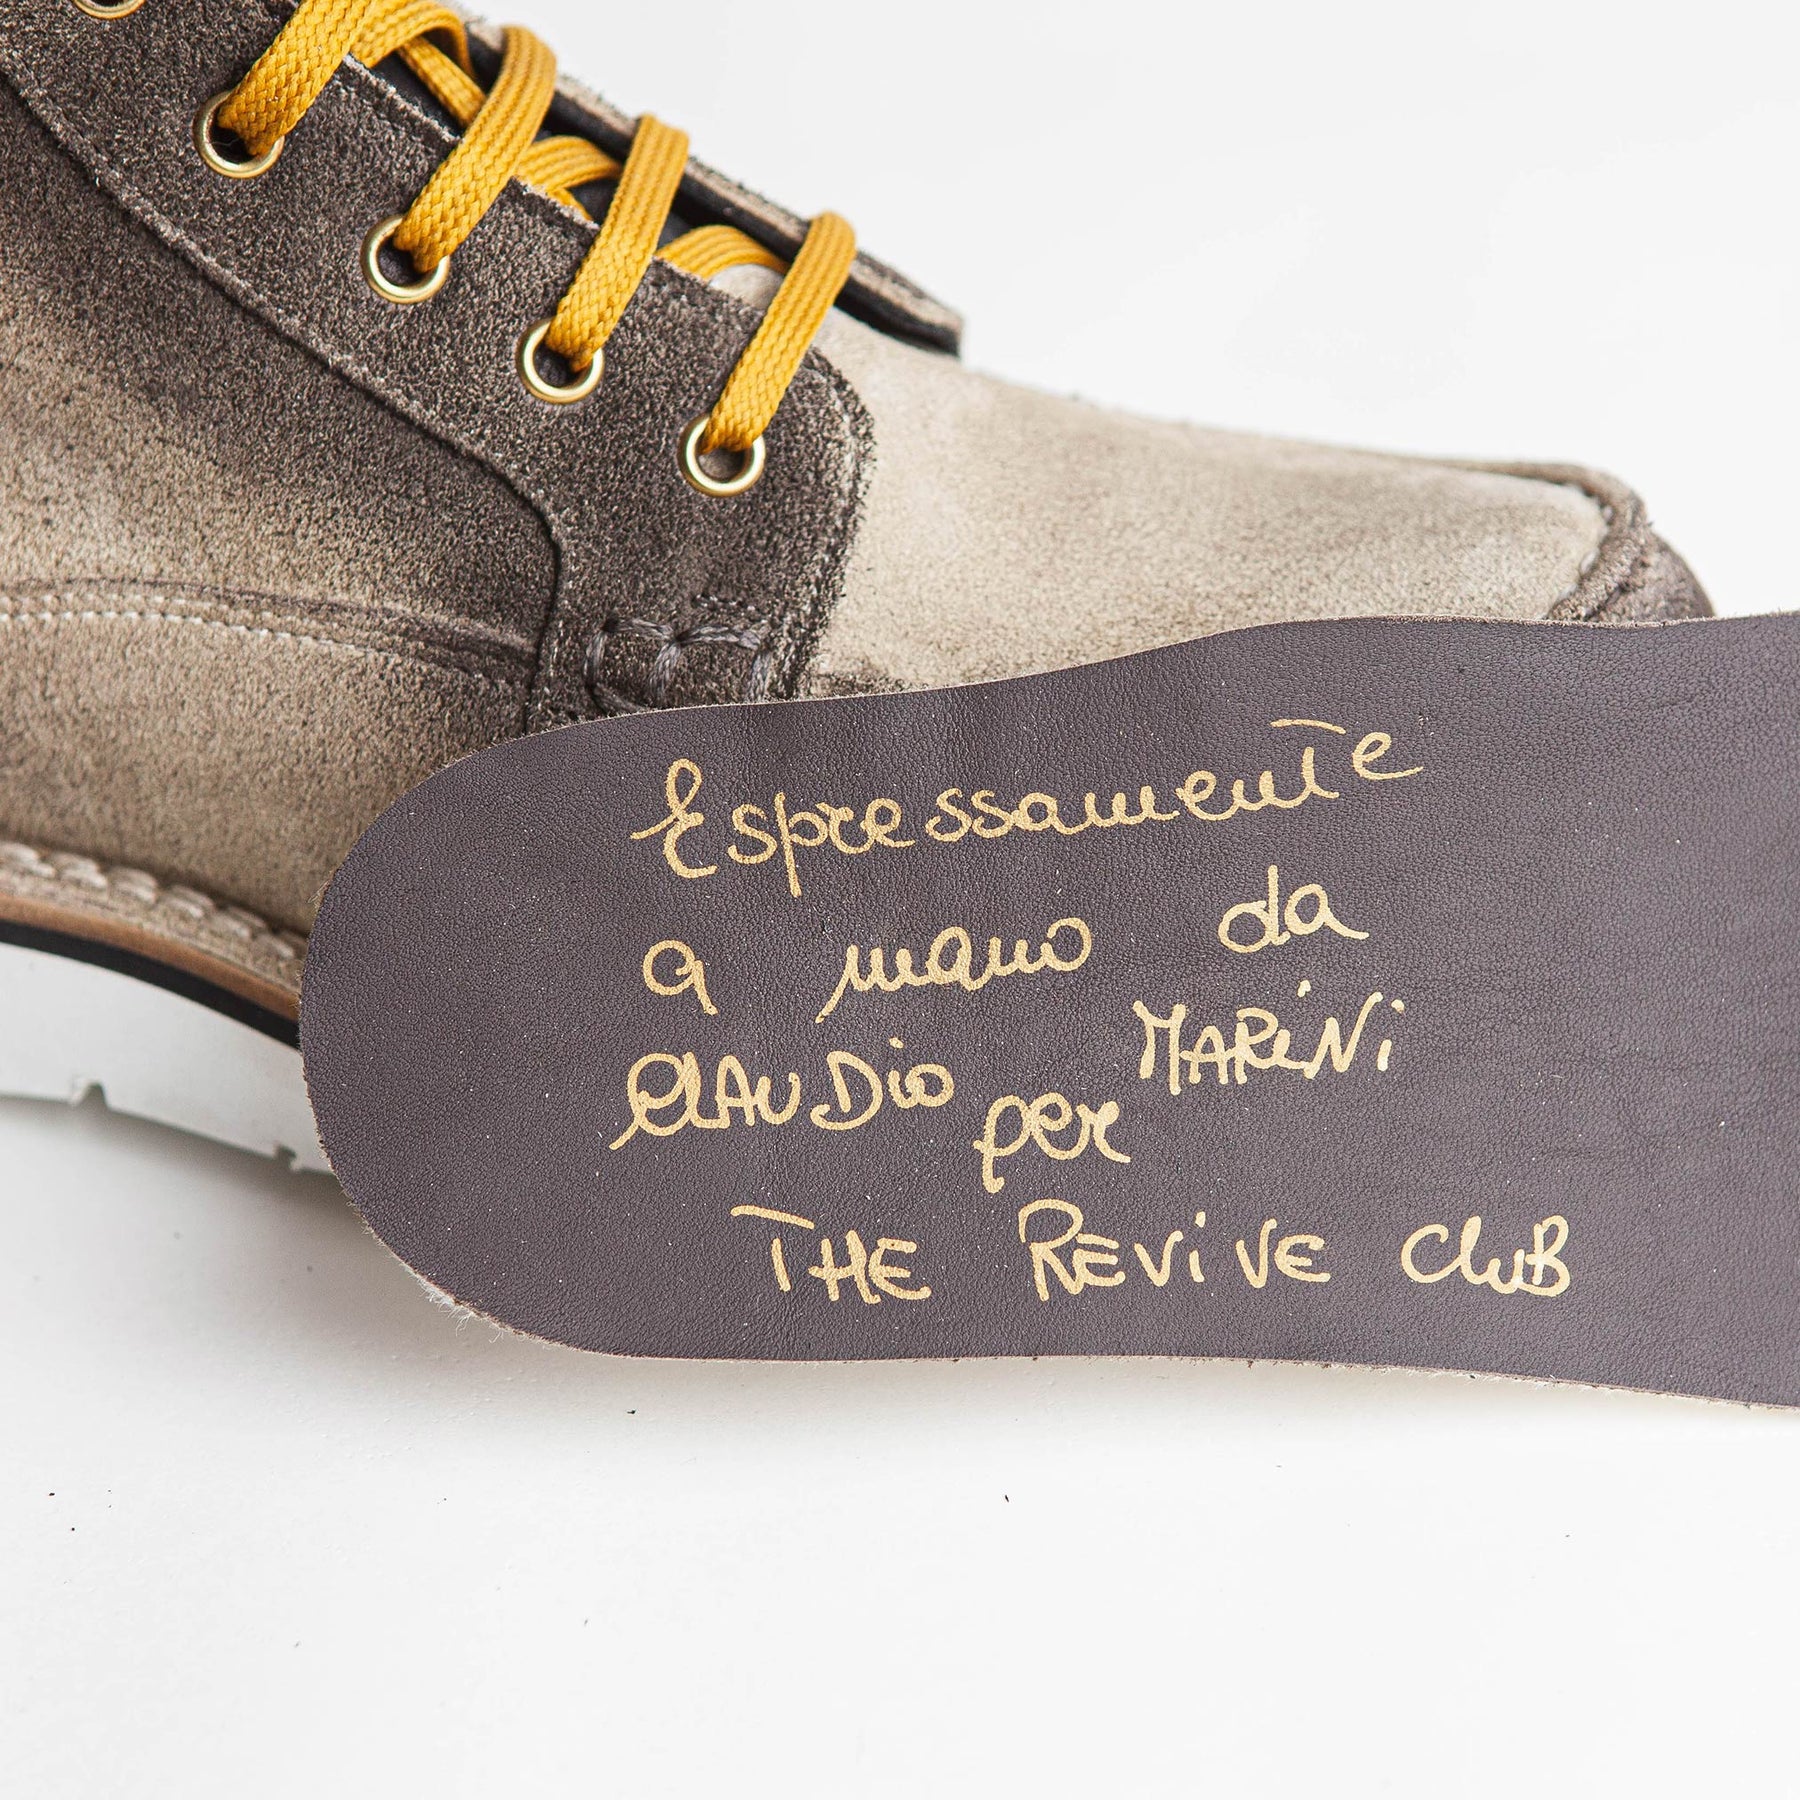 Espressamente
a mano da
CLAUDio MARiNi
per
THE REViVE CluB